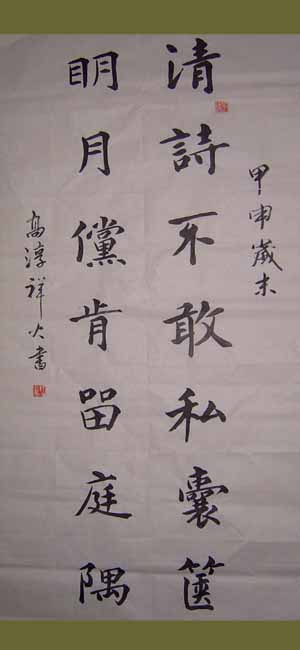 甲申歲末
清詩不敢私囊篋
明月儻肯留庭隅
高淳祥火書